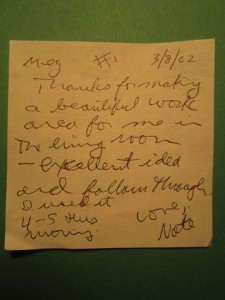 Meg #1 3/8/02
Thanks for making
a beautiful work
area for me in
the living room
- excellent idea
and follow through
I used it
4-5 this
morning.
Love,
Nate